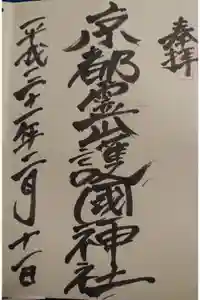 奉拝
京都霊山護國神社
平成二十一年二月十一日